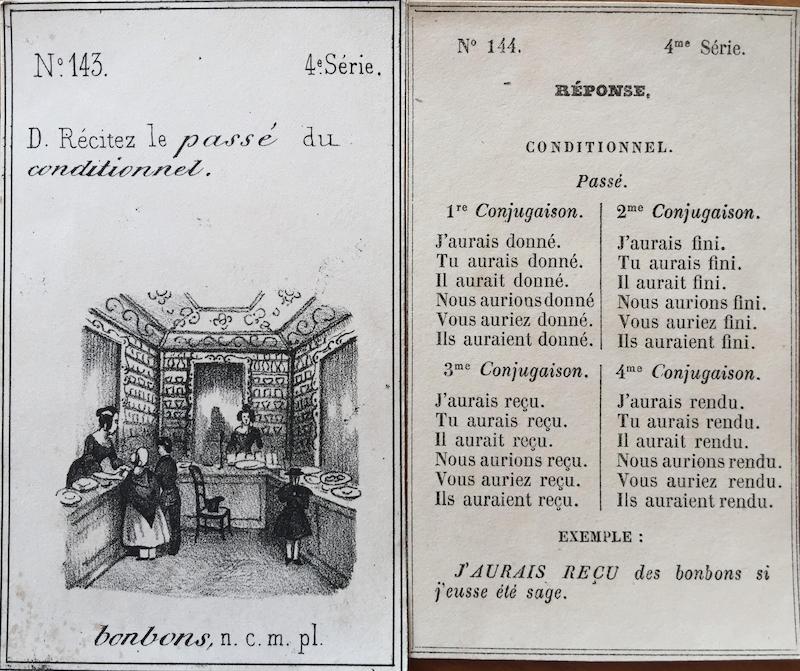 N° 143. 4e Série.
D. Récitez le passé du
conditionnel.
bonbons, n. c. m. pl.
N° 144. 4me Série.
RÉPONSE.
CONDITIONNEL.
Passé.
1re Conjugaison.
J'aurais donné.
Tu aurais donné.
Il aurait donné.
Nous aurions donné
Vous auriez donné.
Ils auraient donné.
2me Conjugaison.
J'aurais fini.
Tu aurais fini.
Il aurait fini.
Nous aurions fini.
Vous auriez fini.
Ils auraient fini.
3me Conjugaison.
J'aurais reçu.
Tu aurais reçu.
Il aurait reçu.
Nous aurions reçu.
Vous auriez reçu.
Ils auraient reçu.
4me Conjugaison.
J'aurais rendu.
Tu aurais rendu.
Il aurait rendu.
Nous aurions rendu.
Vous auriez rendu.
Ils auraient rendu.
EXEMPLE :
J'AURAIS REÇU des bonbons si
j'eusse été sage.